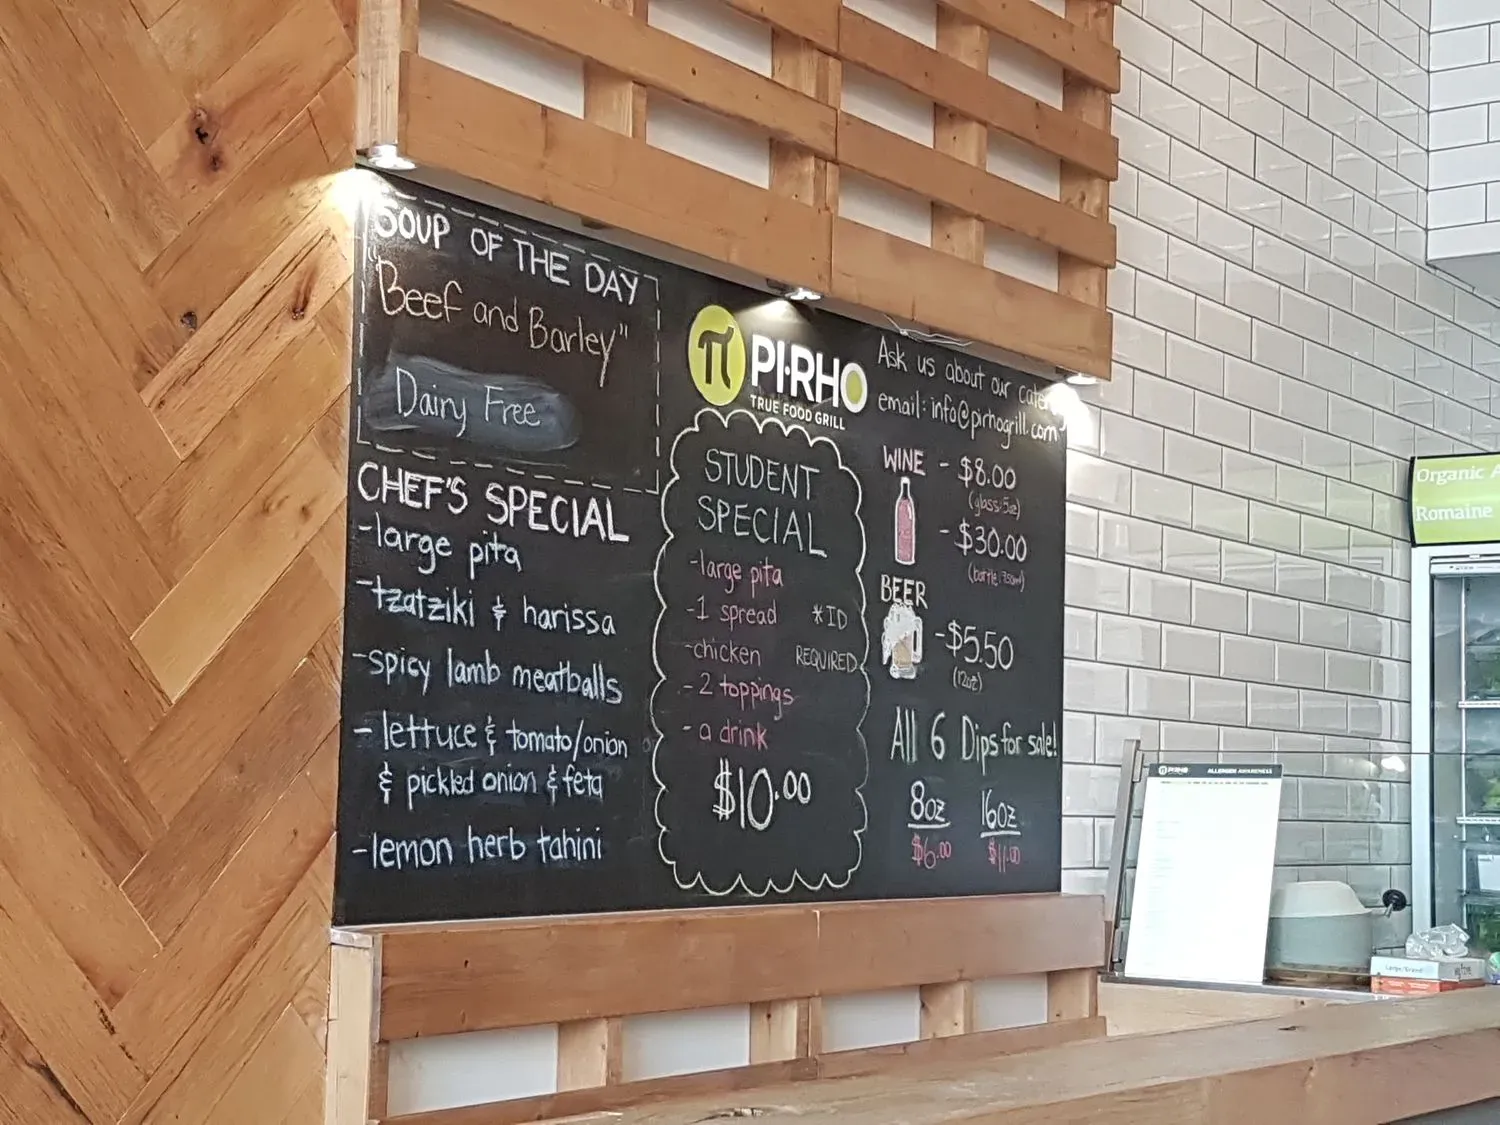 SOUP OF THE DAY
"Beef and Barley"
Dairy Free
CHEF'S SPECIAL
-large pita
-tzatziki & harissa
-spicy lamb meatballs
- lettuce & tomato/onion
& pickled onion & feta
-lemon herb tahini
π PI·RHO
TRUE FOOD GRILL
STUDENT
SPECIAL
-large pita
-1 spread
-chicken
- 2 toppings
- a drink
*ID
REQUIRED
$10.00
Ask us about our
email: info@pirhogrill.com
WINE - $8.00
(glass:5oz)
- $30.00
(bottle:750ml)
BEER
-$5.50
(12oz)
All 6 Dips for sale!
8oz 16oz
$6.00 $11.00
PI·RHO ALLERGEN AWARENESS
Organic
Romaine